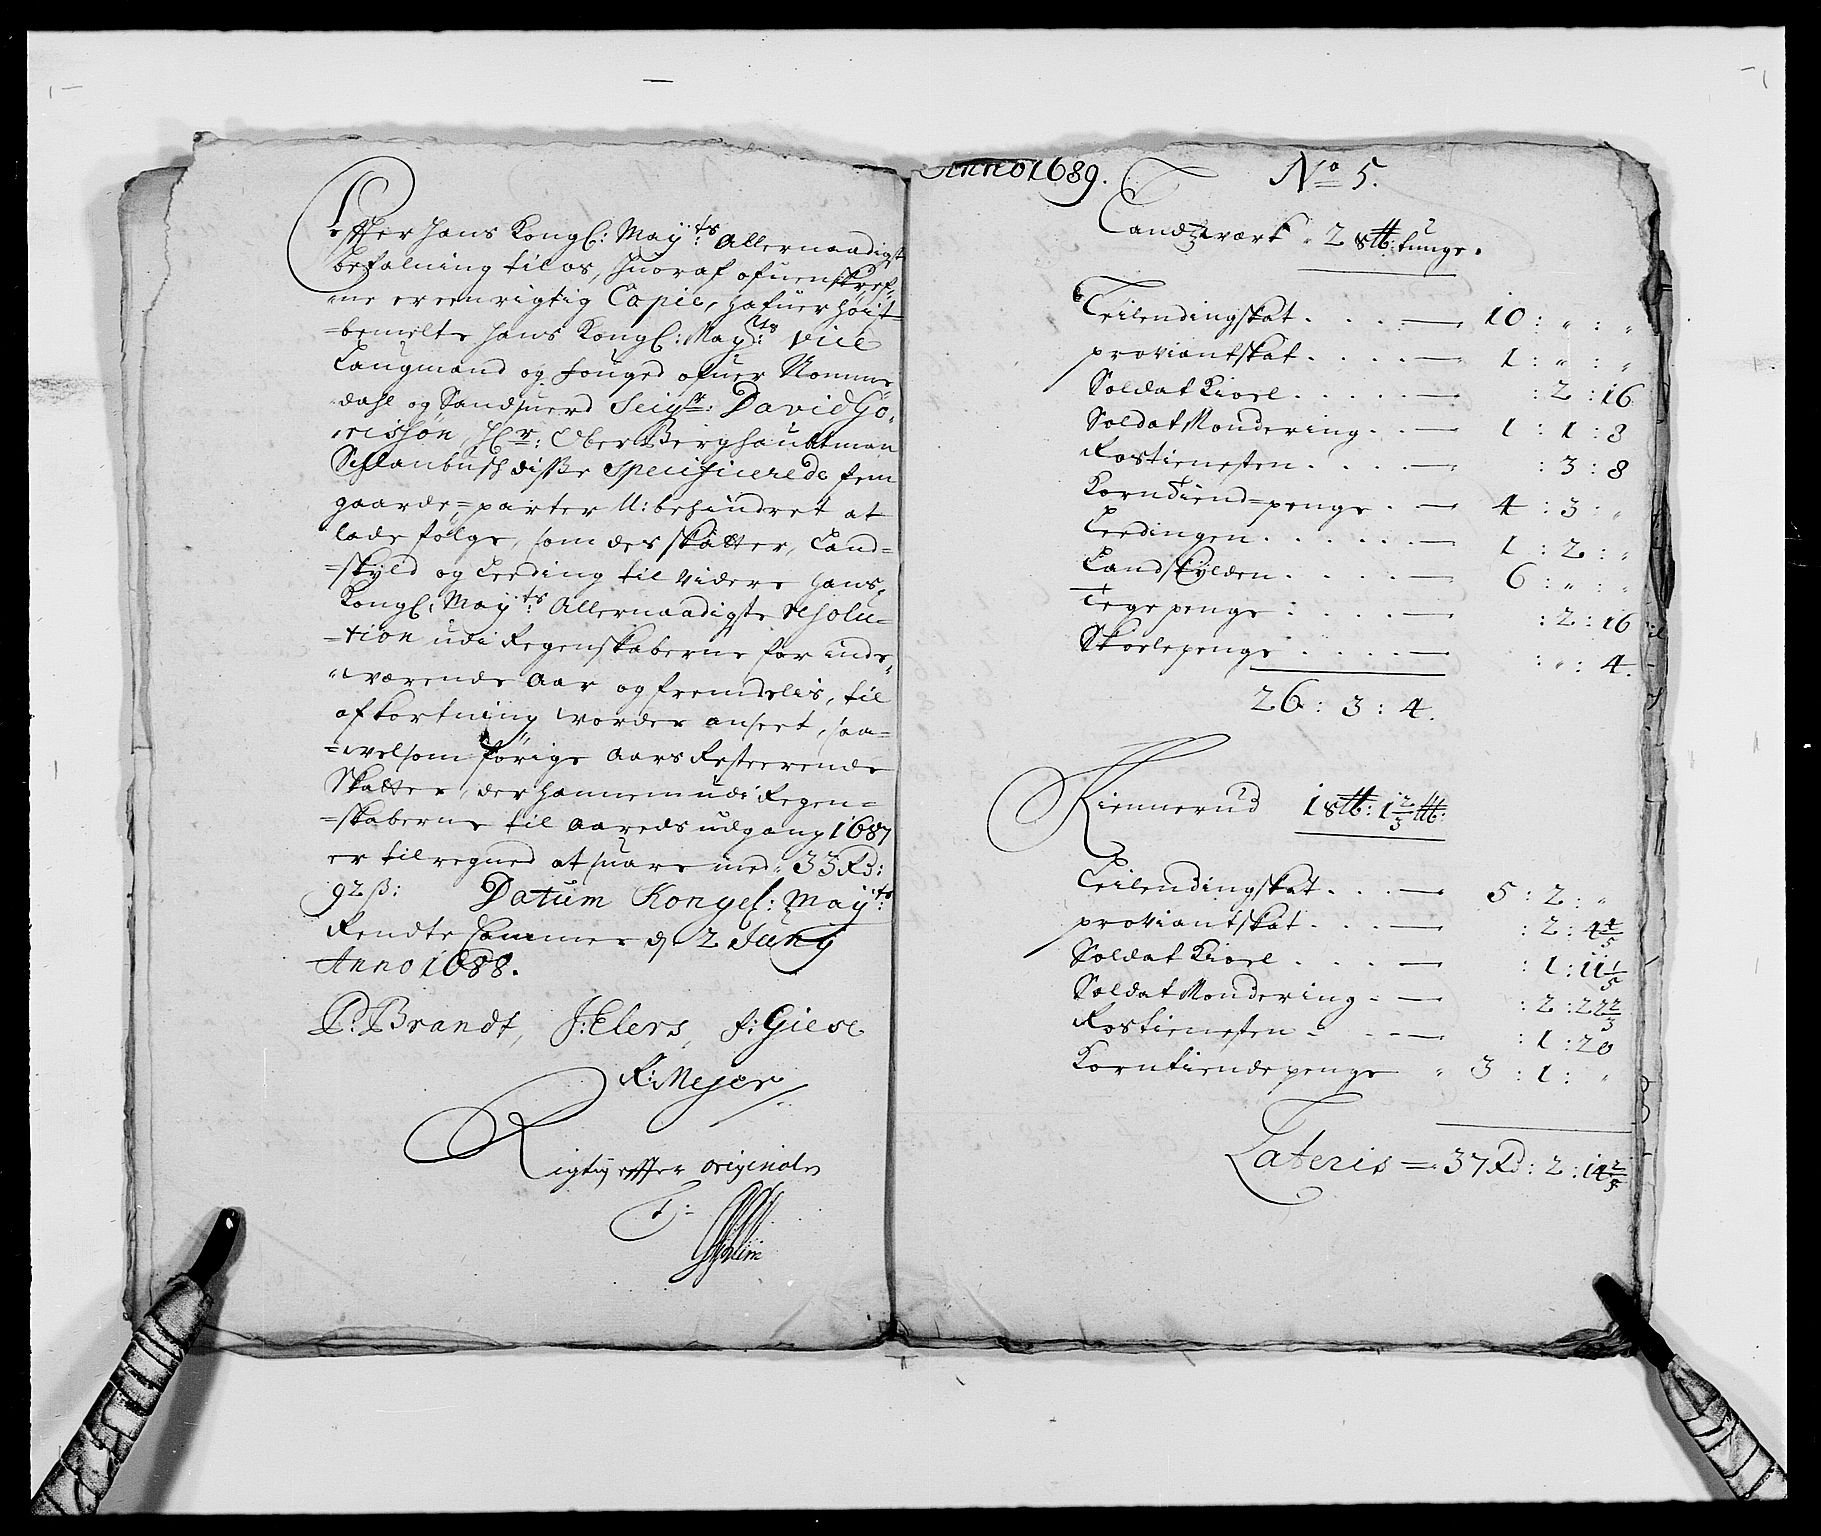 Effter Hans Kongl: May:ts Allernaadigst
befalning til os, huoraf ofuenskref-
ne er een rigtig Copie, hafuer høit-
=bemelte Hans Kongl: May:ts Vice
Laugmand og fouged ofuer Nomme-
dahl og Sandsuerd Seigr: David Gö-
risson, Hr: Ober Berghaubtman
Schlanbusch disse specificerede fem
gaarde=parter U:behindret at
lade følge, som des skatter, Land=
=skyld og Leeding til videre Hans
Kongl: May:ts Allernaadigste resolu=
=tion udi Regenskaberne for inde-
værende Aar og fremdelis, til
afkortning vorder anseet, saa=
=velsom forige Aars Resterende
Skatter, der hannem udi Regen=
=skaberne til Aareds udgang 1687
er tilregned at suare med 33 Rd:
92 ß: Datum Kongel: May:ts
Rendte Cammer d 2 Juny
Anno 1688.
P: Brandt, J: Elers, f: Giese
R: Meyer
Rigtig effter originalen
T:
Anno 1689. No 5.
Landzværk 2 stt: tunge.
Leilendingskat . . . — 10 : " : "
proviantskat . . . . — 1 : " : "
Soldat Kiøel . . . . . — : 2 : 16
Soldat Mondering . . — 1 : 1 : 8
Rostienesten . . . . — : 3 : 8
Korntiend=penge . — 4 : 3 : "
Leedingen . . . . . . — 1 : 2 : "
Landskylden . . . . — 6 : " : "
Tege penge : . . . . — : 2 : 16
Skiorlepenge . . . . — : " : 4.
26 : 3 : 4.
Kiennerud 1 stt: 1 2/3 tt:
Leilendingskat . . . — 5 : 2 : "
proviantskat . . . — : 2 : 4 4/5
Soldat Kiøel . . . . — : 1 : 11 1/5
Soldat Mondering . — : 2 : 22 2/3
Rostienesten . . . — : 1 : 20
Korntiende penge " 3 : 1 : "
Lateris = 37 Rd : 2 : 14 2/5